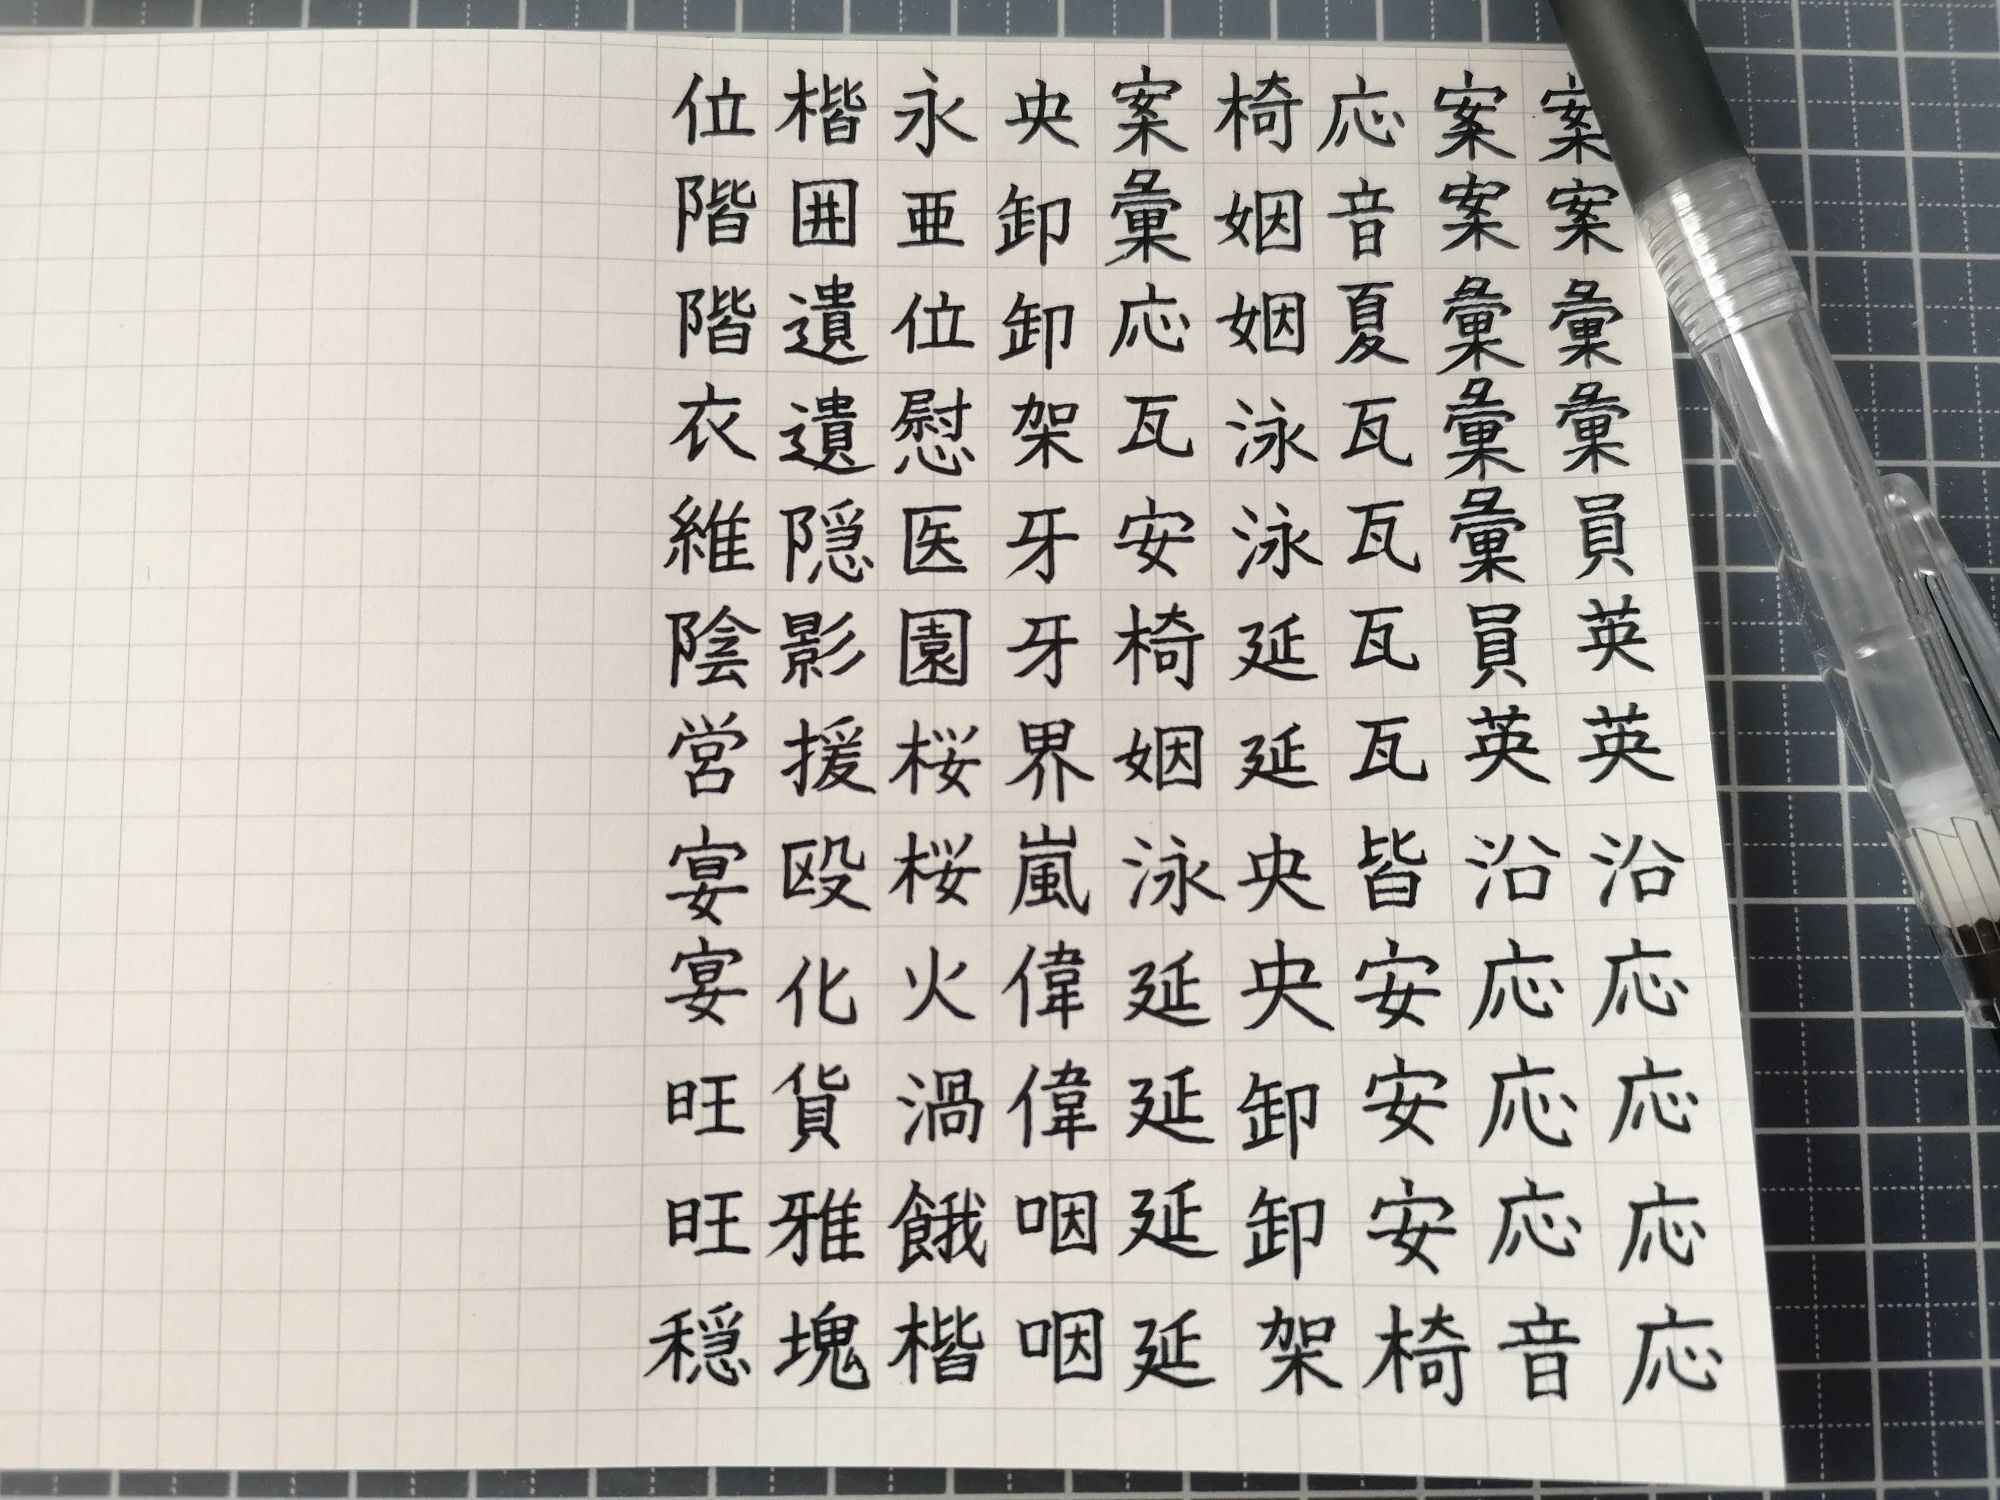 案案彙彙員英英沿応応応応
案案彙彙彙員英沿応応応音
応音夏瓦瓦瓦瓦皆安安安椅
椅姻姻泳泳延延央央卸卸架
案彙応瓦安椅姻泳延延延延
央卸卸架牙牙界嵐偉偉咽咽
永亜位慰医園桜桜火渦餓楷
楷囲遺遺隠影援殴化貨雅塊
位階階衣維陰営宴宴旺旺穏